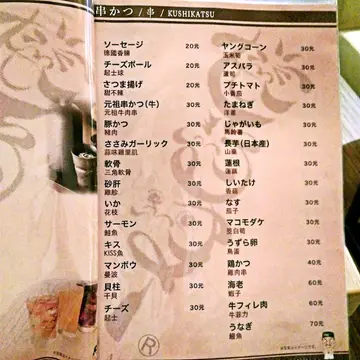 串かつ / 串 / KUSHIKATSU
ソーセージ 20元
德國香腸
チーズボール 20元
起士球
さつま揚げ 20元
甜不辣
元祖串かつ(牛) 30元
元祖牛肉串
豚かつ 30元
豬肉
ささみガーリック 30元
蒜味雞里肌
軟骨 30元
三角軟骨
砂肝 30元
雞胗
いか 30元
花枝
サーモン 30元
鮭魚
キス 30元
KISS魚
マンボウ 30元
曼波
貝柱 30元
干貝
チーズ 30元
起士
ヤングコーン 30元
玉米筍
アスパラ 30元
蘆筍
プチトマト 30元
小番茄
たまねぎ 30元
洋蔥
じゃがいも 30元
馬鈴薯
長芋(日本産) 30元
山藥
蓮根 30元
蓮藕
しいたけ 30元
香菇
なす 30元
茄子
マコモダケ 30元
茭白筍
うずら卵 30元
鳥蛋
鶏かつ 40元
雞肉串
海老 60元
蝦子
牛フィレ肉 60元
牛菲力
うなぎ 70元
鰻魚